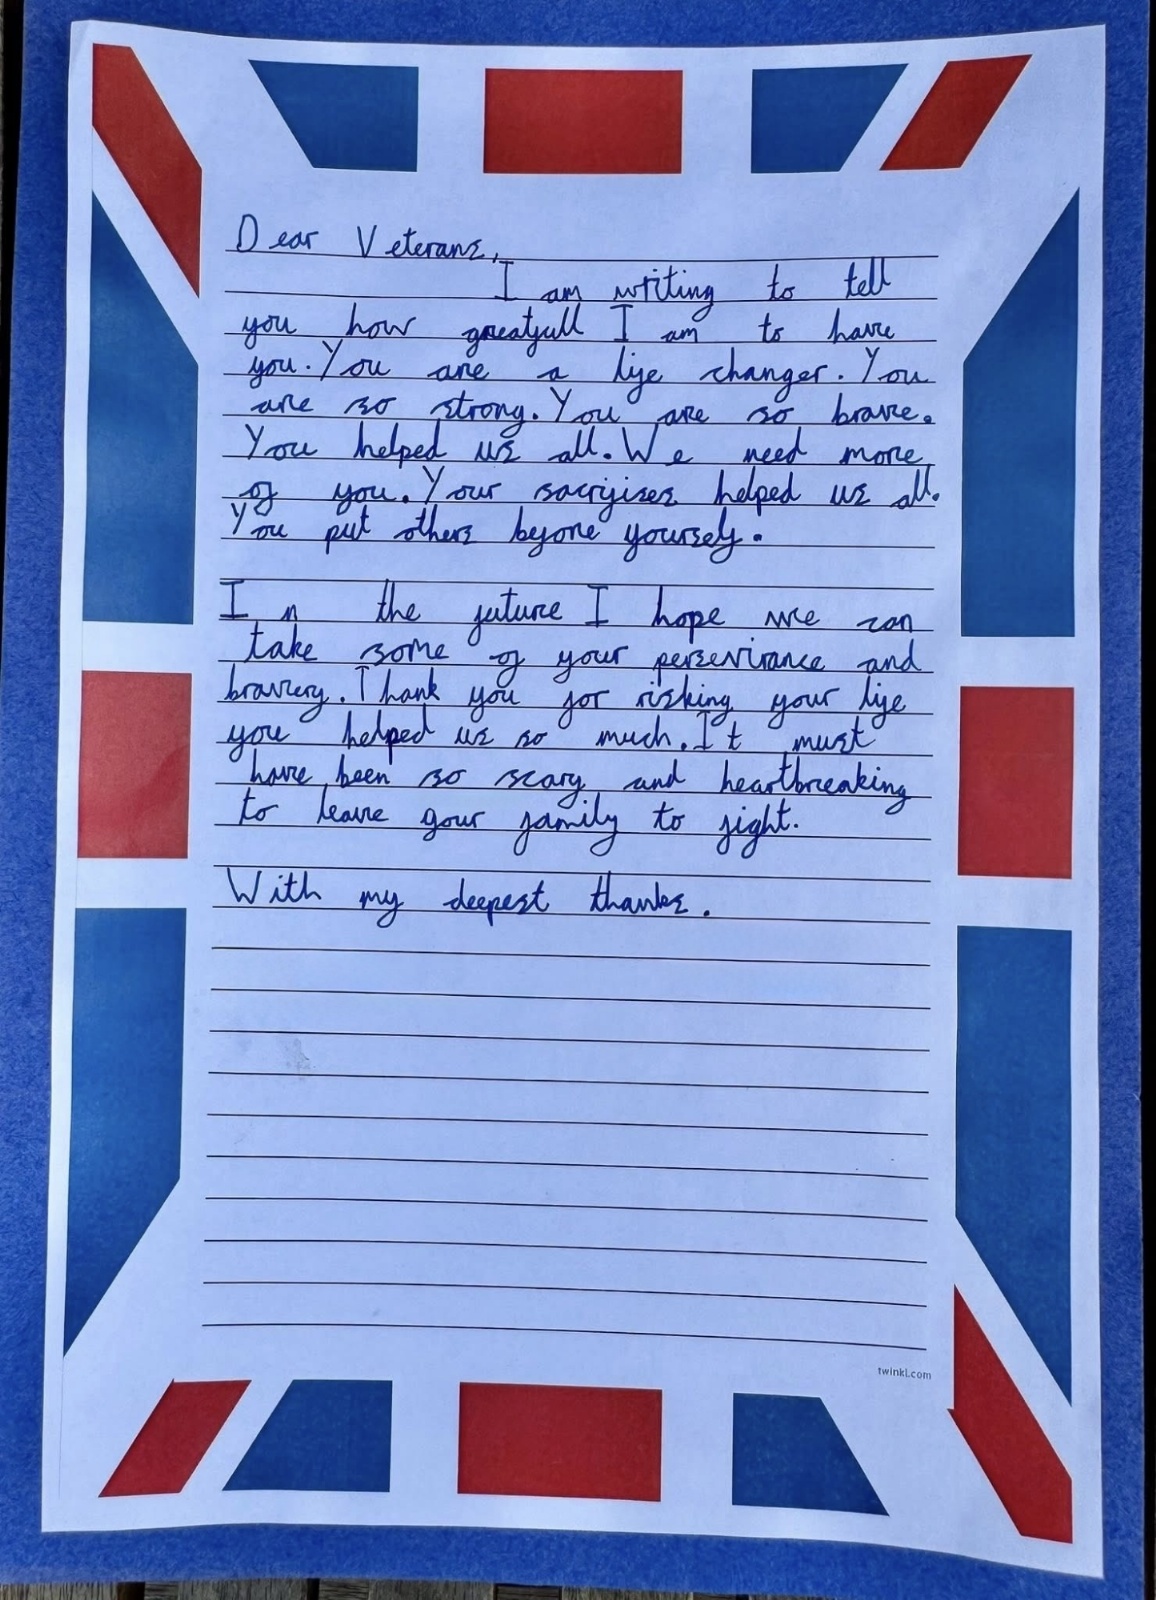 Dear Veterans,
I am writing to tell
you how greatfull I am to have
you. You are a life changer. You
are so strong. You are so brave.
You helped us all. We need more
of you. Your sacrifises helped us all.
You put others before yourself.
In the future I hope we can
take some of your persevirance and
bravery. Thank you for risking your life
you helped us so much. It must
have been so scary and heartbreaking
to leave your family to fight.
With my deepest thanks.
twinkl.com